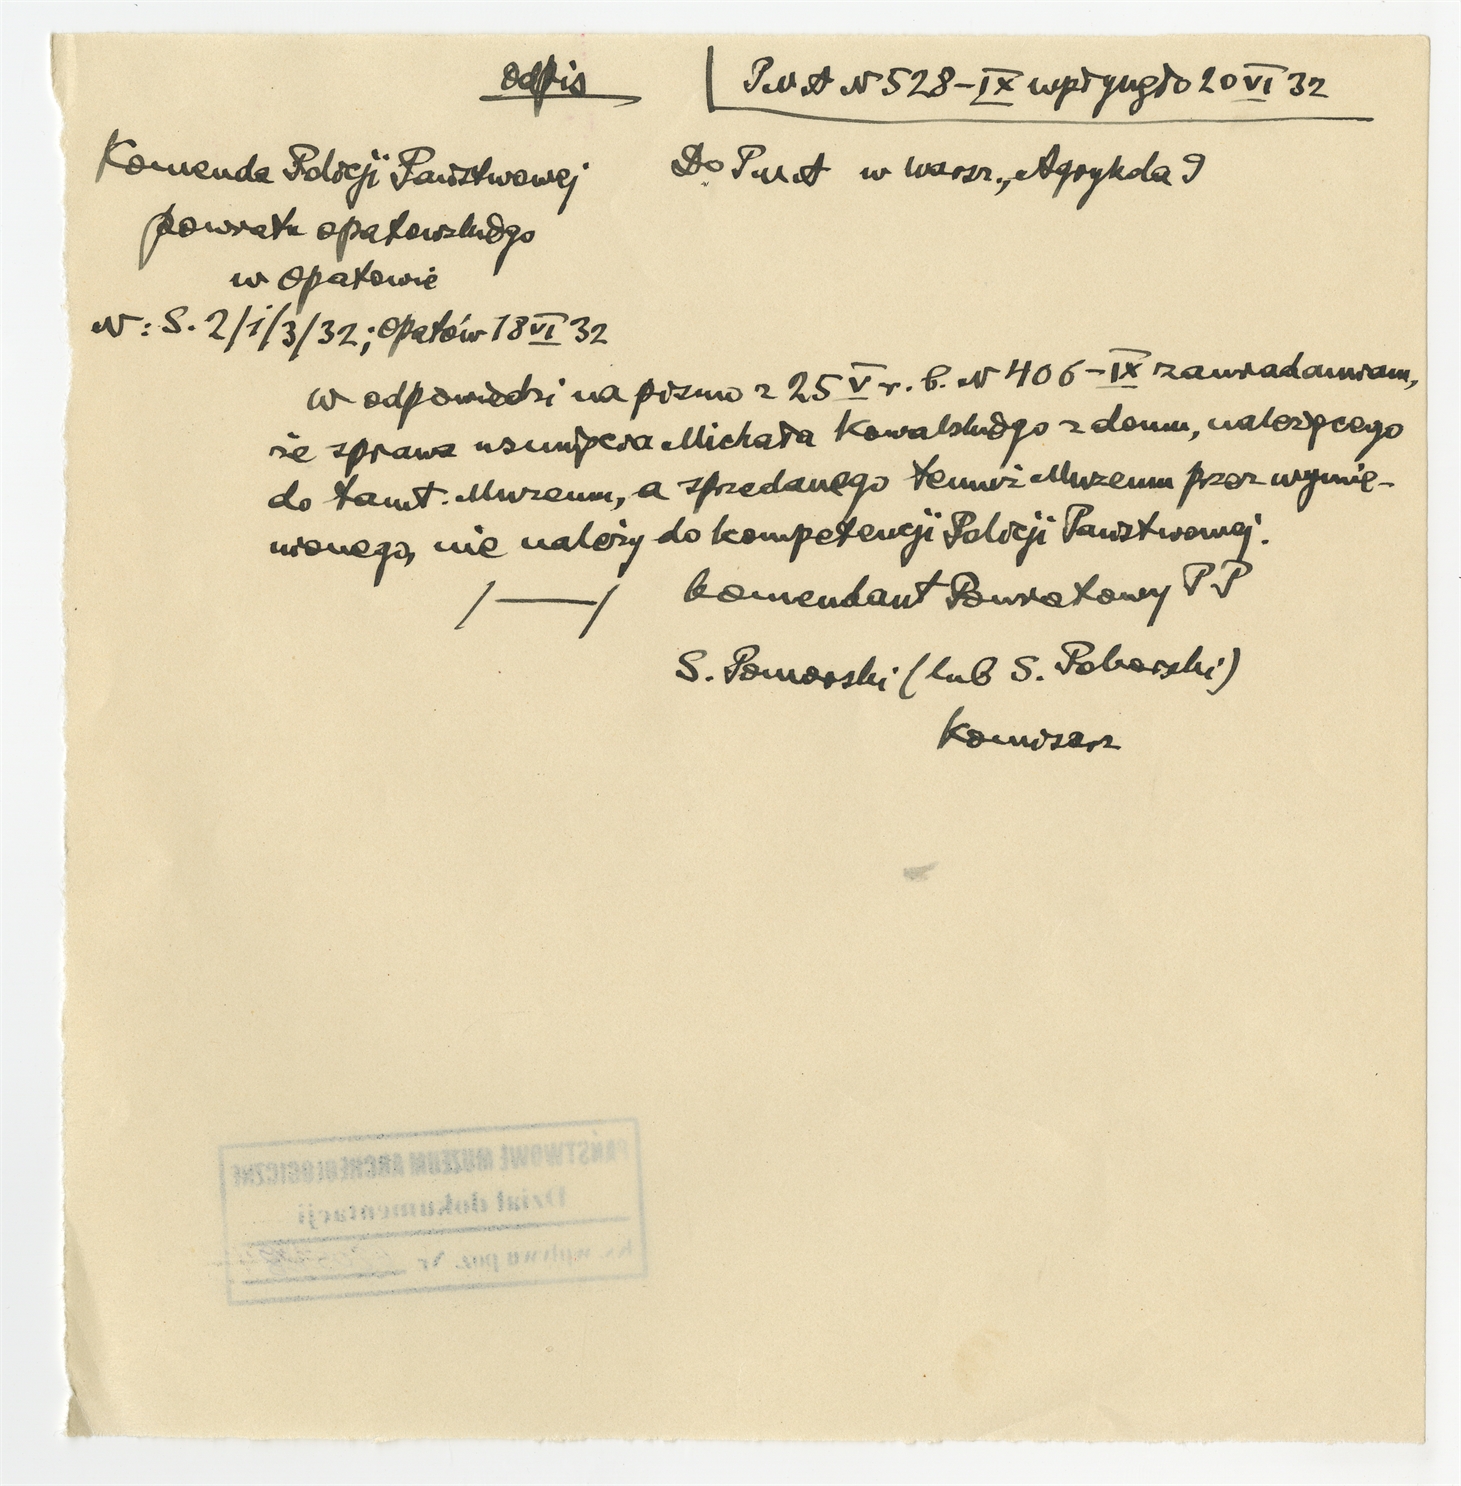 Odpis
PMA N 528-IX wpłynęło 20 VI 32
Komenda Policji Państwowej
powiatu opatowskiego
w Opatowie
N: S. 2/1/3/32; Opatów 18 VI 32
Do PMA w Warsz., Agrykola 9
W odpowiedzi na pismo z 25 V r. b. N 406-IX zawiadamiam,
że sprawa usunięcia Michała Kowalskiego z domu, należącego
do tamt. Muzeum, a sprzedanego temuż Muzeum przez wymie-
nionego, nie należy do kompetencji Policji Państwowej.
/—/ Komendant Powiatowy PP
S. Pomorski (lub S. Poborski)
Komisarz
PAŃSTWOWE MUZEUM ARCHEOLOGICZNE
Dział dokumentacji
Ks. wpływu poz. Nr